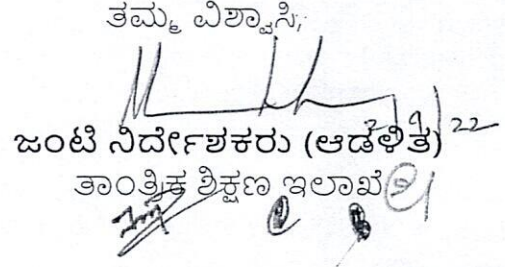 ತಮ್ಮ ವಿಶ್ವಾಸಿ,
ಜಂಟಿ ನಿರ್ದೇಶಕರು (ಆಡಳಿತ)
ತಾಂತ್ರಿಕ ಶಿಕ್ಷಣ ಇಲಾಖೆ